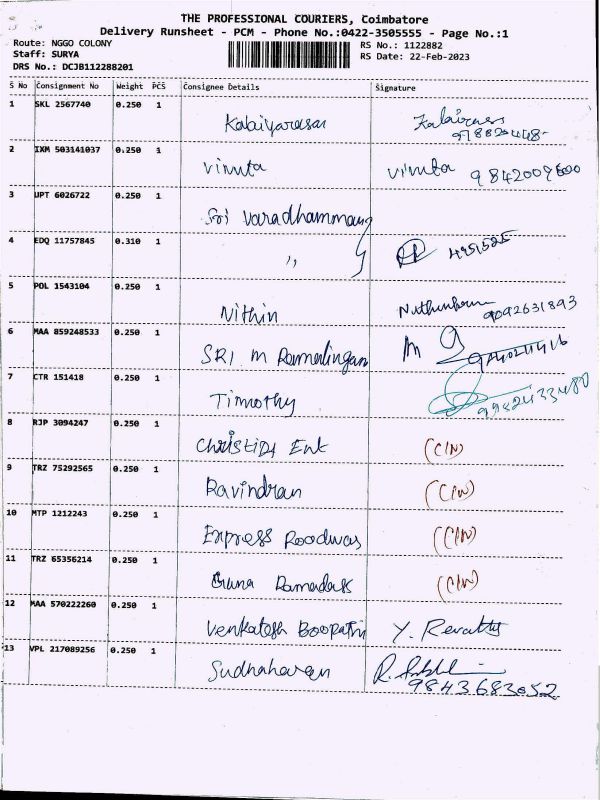 THE PROFESSIONAL COURIERS, Coimbatore
Delivery Runsheet - PCM - Phone No.:0422-3505555 - Page No.:1
Route: NGGO COLONY
Staff: SURYA
DRS No.: DCJB112288201
RS No.: 1122882
RS Date: 22-Feb-2023
S No Consignment No Weight PCS Consignee Details Signature
1 SKL 2567740 0.250 1
Kalaiyarasan
2 IXM 503141037 0.250 1
Vinuta Vinuta 9842009600
3 UPT 6026722 0.250 1
Sri Varadhammang
4 EDQ 11757845 0.310 1
,,
5 POL 1543104 0.250 1
Nithin 9092631893
6 MAA 859248533 0.250 1
SRI M Ramalingam M
7 CTR 151418 0.250 1
Timothy
8 RJP 3094247 0.250 1
Ent (CIN)
9 TRZ 75292565 0.250 1
Ravindran (CIN)
10 MTP 1212243 0.250 1
Express Roodwas (CIN)
11 TRZ 65356214 0.250 1
Guna Ramadass (CIN)
12 MAA 570222260 0.250 1
Venkatesh Boopathi Y. Revathi
13 VPL 217089256 0.250 1
Sudhaharan R.
9843683052